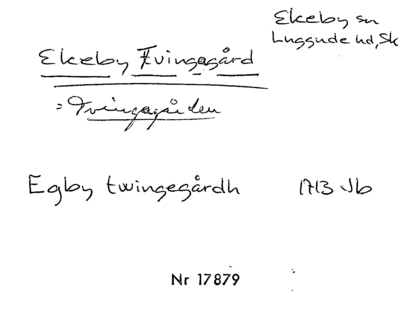 Ekeby sn
Luggude hd, Sk
Ekeby Tvingagård
= Tvingagården
Egby twingegårdh 1713 Jb
Nr 17879